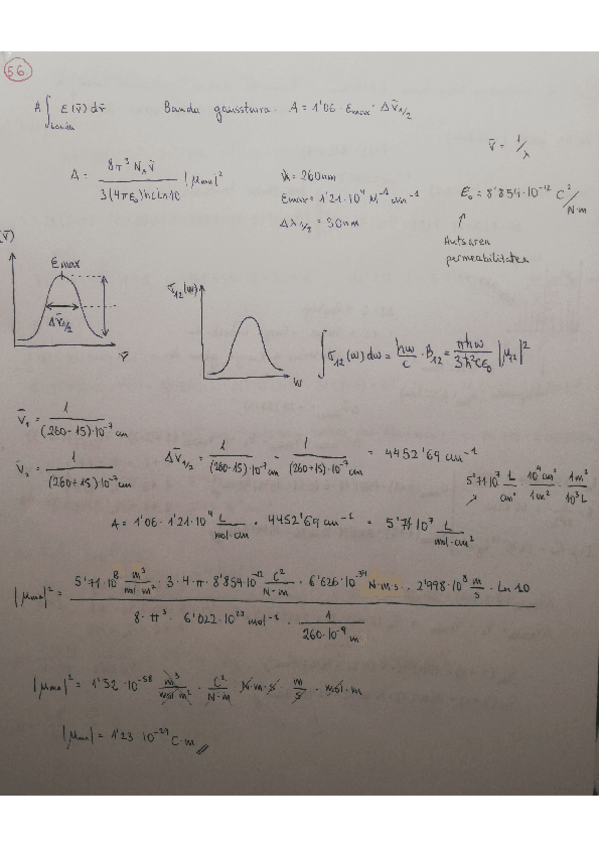 5.6
A ∫banda ε(ṽ) dṽ Banda gausstarra. A = 1'06 · εmax · Δṽ1/2
ṽ = 1/λ
A = 8π³ NA ṽ / 3(4πε₀)hc ln10 |μmn|²
λ = 260nm
εmax = 1'21·10⁴ M⁻¹ cm⁻¹
Δλ1/2 = 30nm
ε₀ = 8'854·10⁻¹² C²/N·m
↑
Hutsaren
permeabilitatea
(ṽ)
εmax
Δṽ1/2
ṽ
σ12(w)
w
∫σ12(w)dw = ħw/c · B12 = πħw/3ħ²cε₀ |μ12|²
ṽ₁ = 1/(260-15)·10⁻⁷cm
ṽ₂ = 1/(260+15)·10⁻⁷cm
Δṽ1/2 = 1/(260-15)·10⁻⁷cm - 1/(260+15)·10⁻⁷cm = 4452'69 cm⁻¹
5'71·10⁷ L/cm² · 10⁴cm²/1m² · 1m³/10³L
A = 1'06 · 1'21·10⁴ L/mol·cm · 4452'69 cm⁻¹ = 5'71·10⁷ L/mol·cm²
|μmn|² = 5'71·10⁸ m³/mol·m² · 3·4·π·8'854·10⁻¹² C²/N·m · 6'626·10⁻³⁴ N·m·s · 2'998·10⁸ m/s · ln 10 / 8·π³ · 6'022·10²³ mol⁻¹ · 1/260·10⁻⁹m
|μmn|² = 1'52·10⁻⁵⁸ m³/mol·m² · C²/N·m · N·m·s · m/s · mol·m
|μmn| = 1'23·10⁻²⁹ C·m